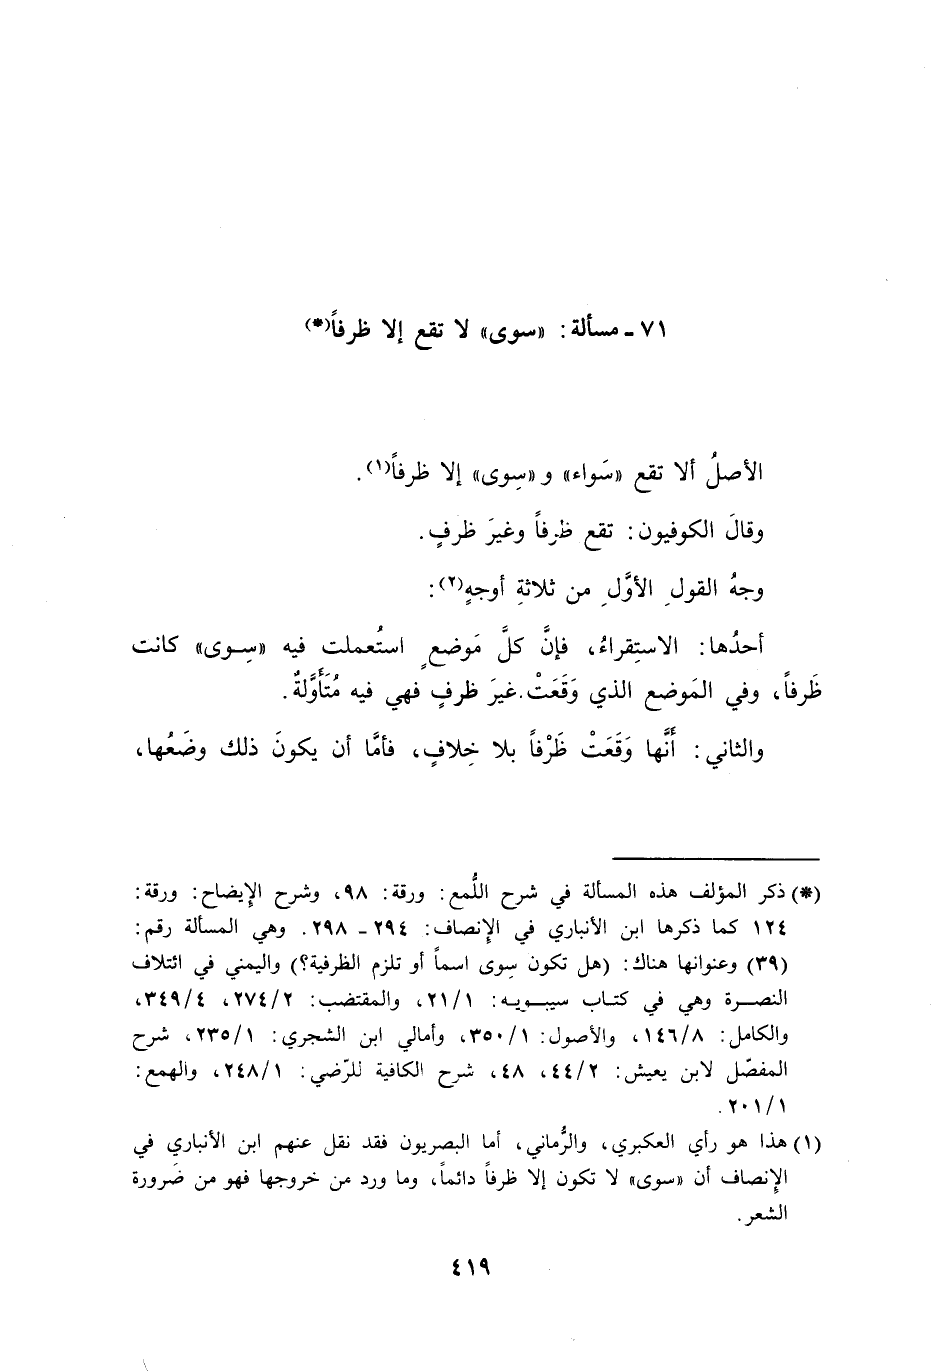 ٧١ ـ مسألة: «سوى» لا تقع إلا ظرفاً(*)
الأصلُ ألا تقع «سَواء» و «سِوى» إلا ظرفاً(١).
وقالَ الكوفيون: تقع ظرفاً وغيرَ ظرفٍ.
وجهُ القولِ الأوَّلِ من ثلاثةِ أوجهٍ(٢):
أحدُها: الاستِقراءُ، فإنَّ كلَّ مَوضعٍ استُعملت فيه «سِوى» كانت
ظَرفاً، وفي المَوضع الذي وَقَعَتْ غيرَ ظرفٍ فهي فيه مُتَأَوَّلةٌ.
والثاني: أنَّها وَقَعَتْ ظَرْفاً بلا خِلافٍ، فأمَّا أن يكونَ ذلك وضَعُها،
(*) ذكر المؤلف هذه المسألة في شرح اللُّمع: ورقة: ٩٨، وشرح الإيضاح: ورقة:
١٢٤ كما ذكرها ابن الأنباري في الإنصاف: ٢٩٤ ـ ٢٩٨. وهي المسألة رقم:
(٣٩) وعنوانها هناك: (هل تكون سِوى اسماً أو تلزم الظرفية؟) واليمني في ائتلاف
النصرة وهي في كتاب سيبويه: ٢١/١، والمقتضب: ٢٧٤/٢، ٣٤٩/٤،
والكامل: ١٤٦/٨، والأصول: ٣٥٠/١، وأمالي ابن الشجري: ٢٣٥/١، شرح
المفصّل لابن يعيش: ٤٤/٢، ٤٨، شرح الكافية للرّضي: ٢٤٨/١، والهمع:
٢٠١/١.
(١) هذا هو رأي العكبري، والرُّماني، أما البصريون فقد نقل عنهم ابن الأنباري في
الإنصاف أن «سوى» لا تكون إلا ظرفاً دائماً، وما ورد من خروجها فهو من ضَرورة
الشعر.
٤١٩